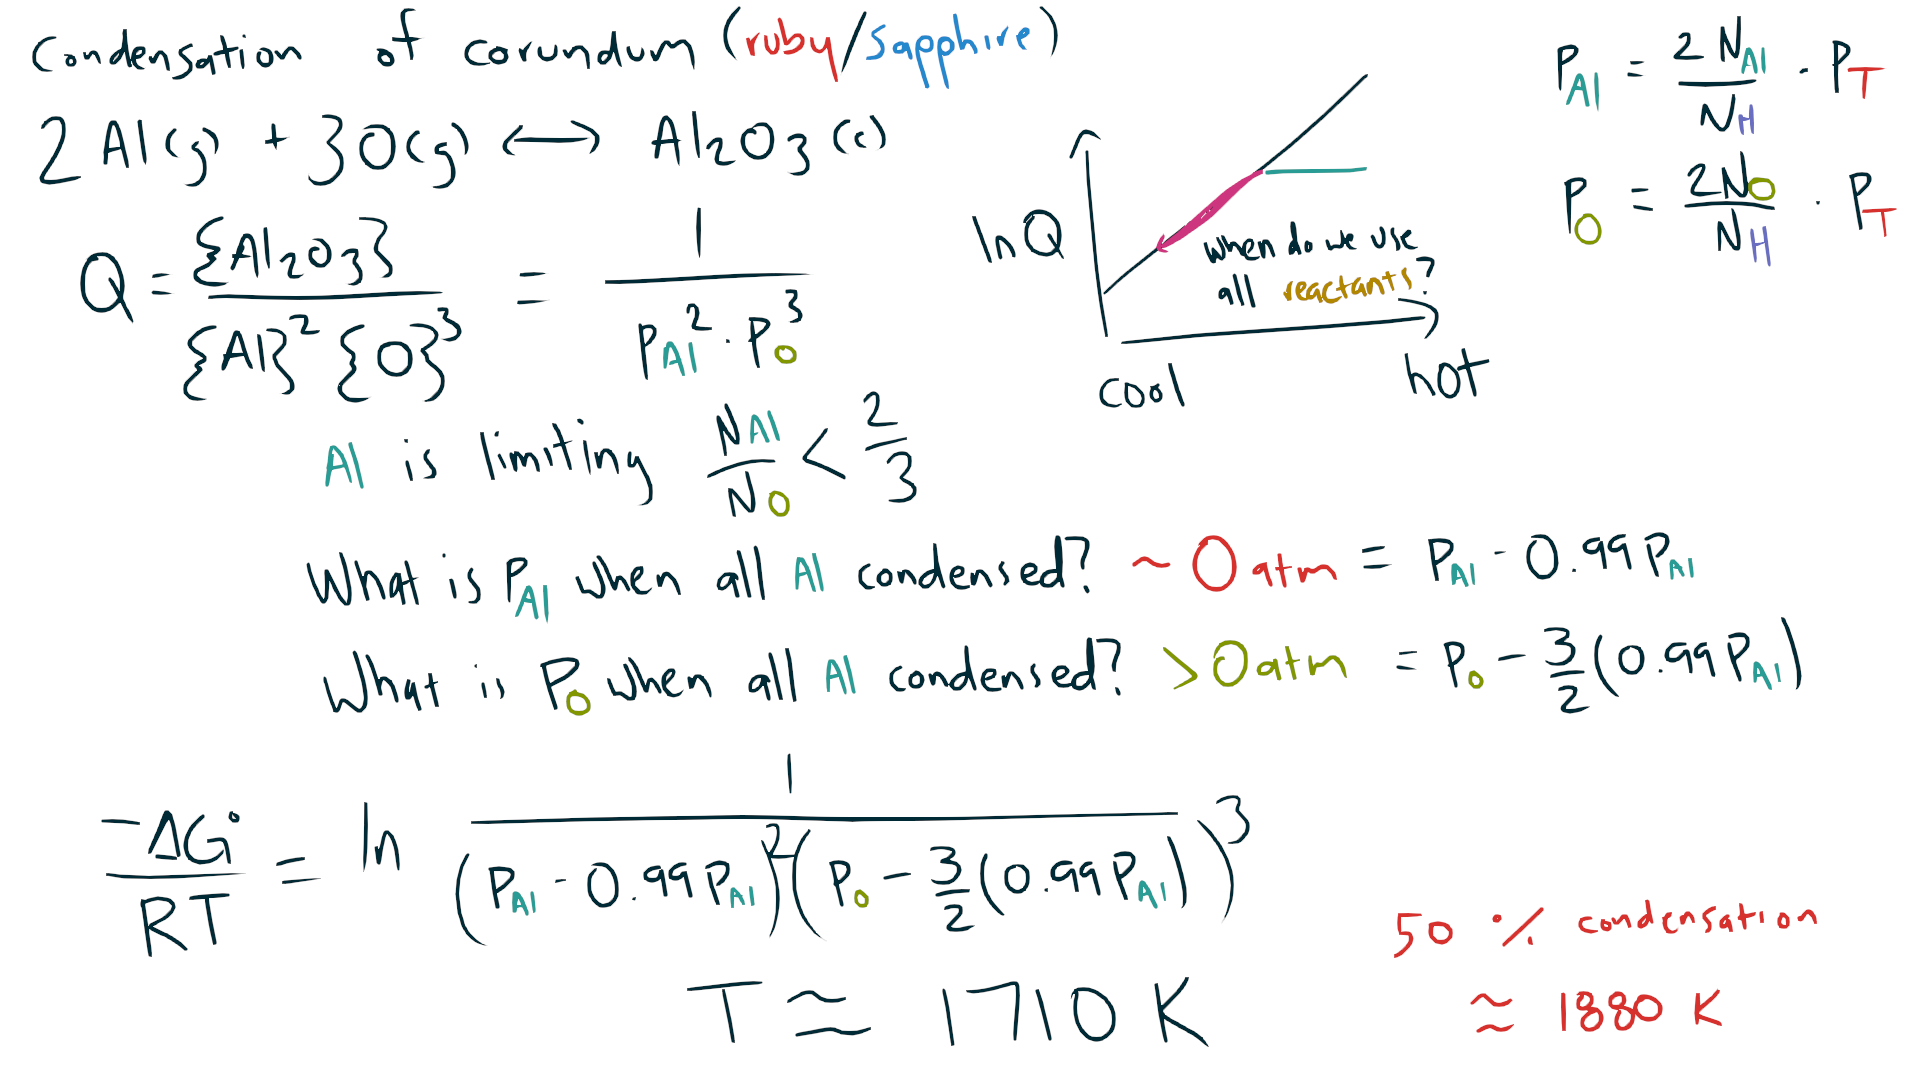 Condensation of corundum (ruby/sapphire)
2 Al(g) + 3O(g) ⟷ Al₂O₃(c)
Q = {Al₂O₃} / {Al}² {O}³ = 1 / P_Al² · P_O³
P_Al = 2 N_Al / N_H · P_T
P_O = 2N_O / N_H · P_T
ln Q
when do we use
all reactants?
cool
hot
Al is limiting N_Al / N_O < 2/3
What is P_Al when all Al condensed? ~ 0 atm = P_Al - 0.99 P_Al
What is P_O when all Al condensed? > 0 atm = P_O - 3/2 (0.99 P_Al)
-ΔG° / RT = ln 1 / (P_Al - 0.99 P_Al)² (P_O - 3/2 (0.99 P_Al))³
T ≈ 1710 K
50 % condensation
≈ 1880 K